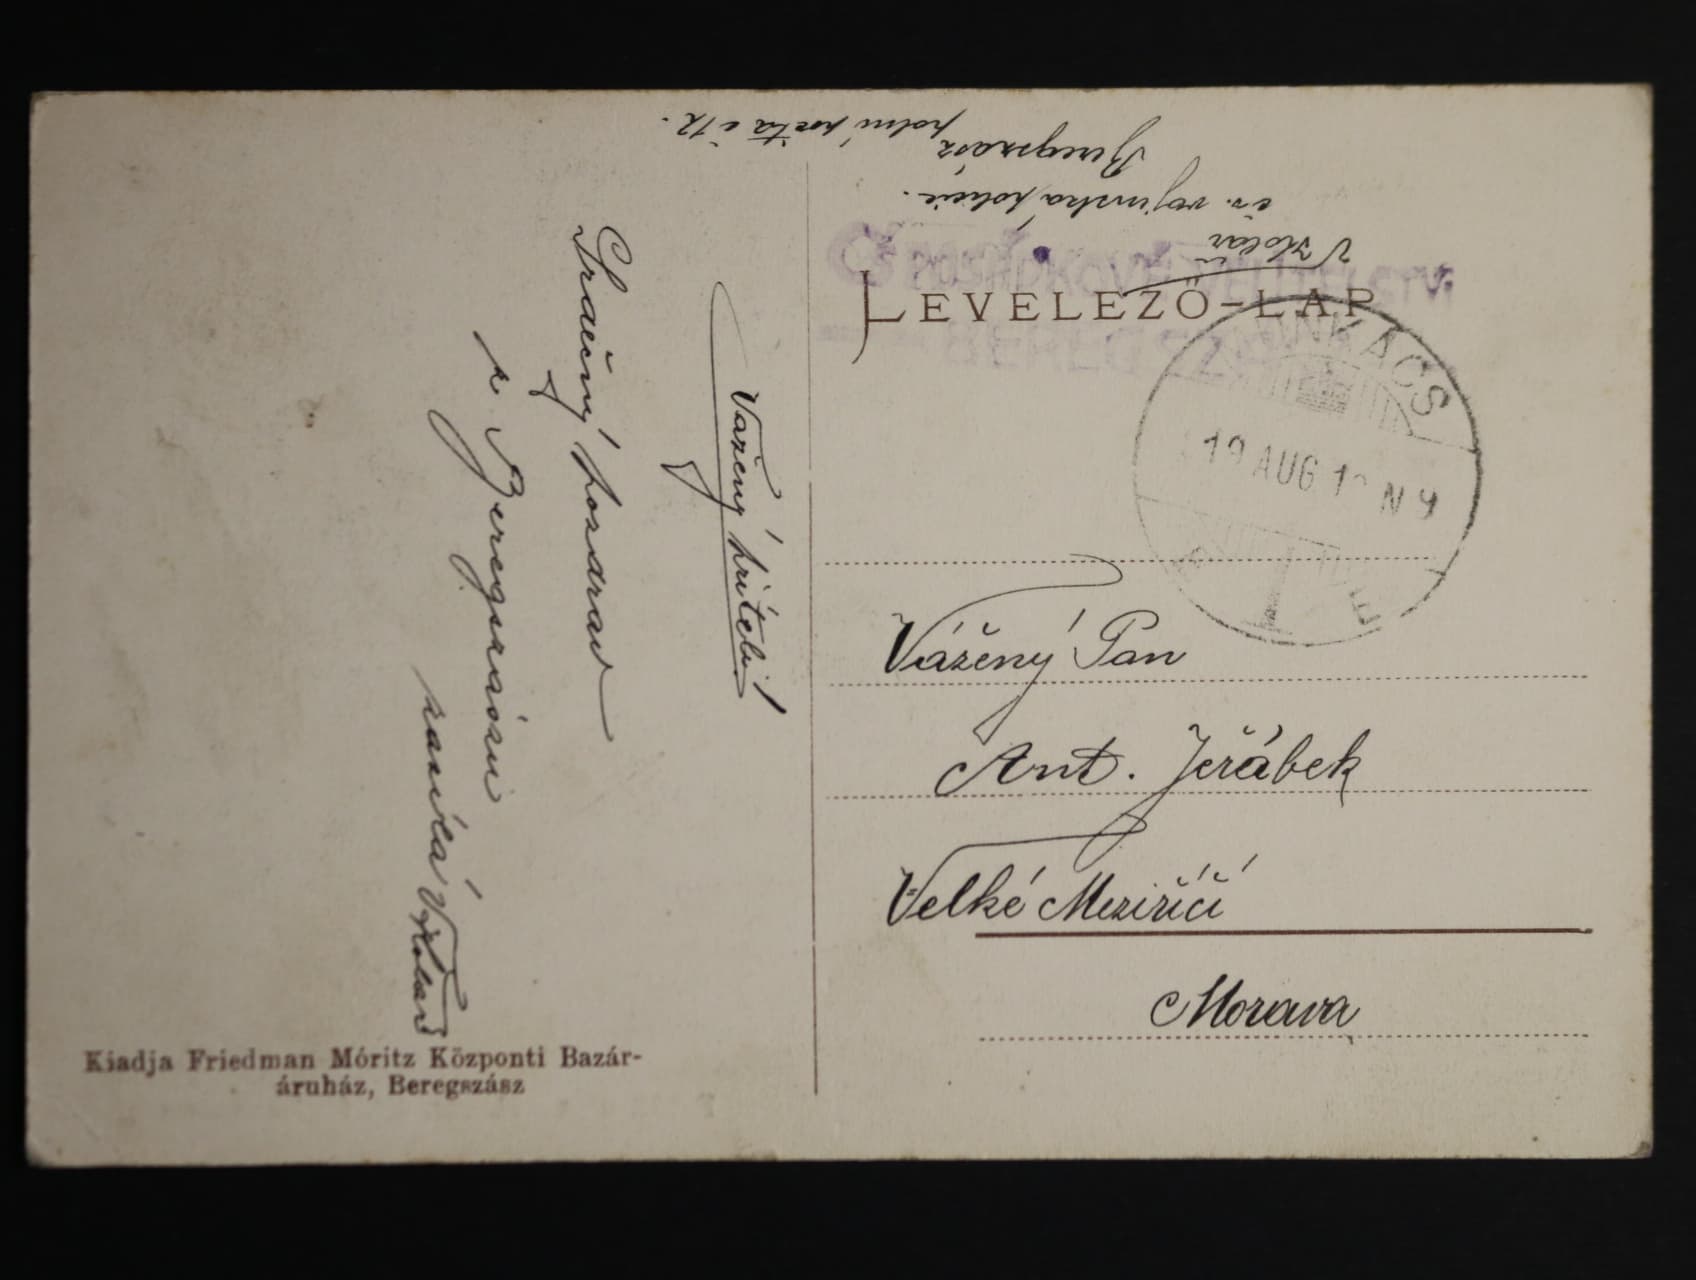 V. Kolář
čs. vojenská policie.
Beregszász
polní pošta č 12.
ČS POSÁDKOVÉ VELITELSTVÍ
BEREGSZÁSZ
LEVELEZŐ-LAP
MUNKÁCS
19 AUG 1 N 9
Vážený příteli!
Srdečný pozdrav
z Beregszászu
zasílá V. Kolář
Vážený Pan
Ant. Jeřábek
Velké Meziříčí
Morava
Kiadja Friedman Móritz Központi Bazár-
áruház, Beregszász